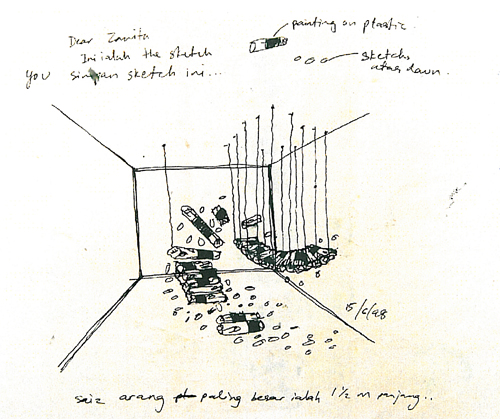 Dear Zanita
Ini ialah the sketch
You simpan sketch ini...
painting on plastic
sketch
atas daun.
15/6/98
saiz arang paling besar ialah 1 1/2 m panjang..